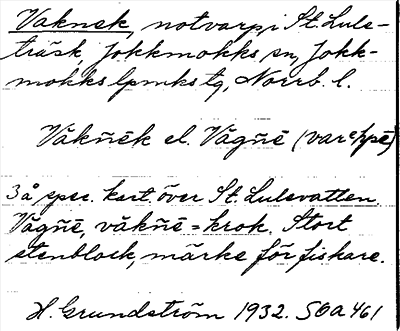 Vaknek, notvarp, i St. Lule-
träsk, Jokkmokks sn, Jokk-
mokks lpmks tg, Norrb. l.
Vākńēk el. Vāgńē (var
3 å spec. kart. över St. Lulevatten.
Vāgńē, vākńē = krok. Stort
stenblock, märke för fiskare.
H. Grundström 1932. SOA 461